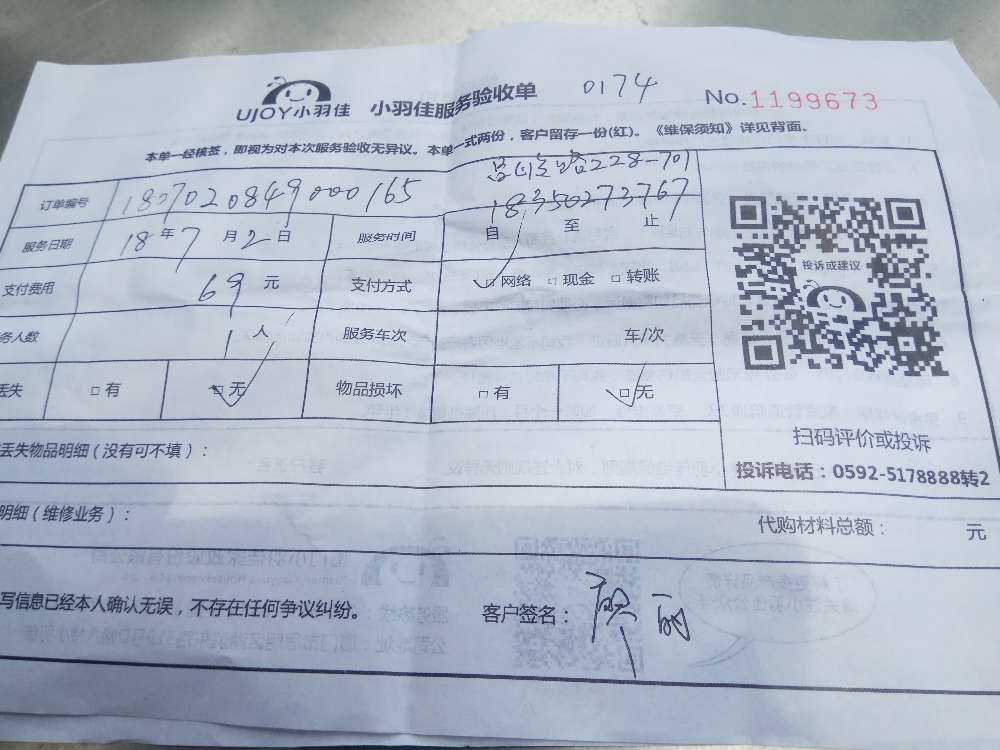 UJOY小羽佳 小羽佳服务验收单 0174 No.1199673
本单一经核签，即视为对本次服务验收无异议。本单一式两份，客户留存一份(红)。《维保须知》详见背面。
228-701
订单编号 1807020849000165 18350273767
服务日期 18年7月2日 服务时间 自 至 止
支付费用 69元 支付方式 网络 现金 转账
务人数 1人 服务车次 车/次
丢失 有 无 物品损坏 有 无
投诉或建议
扫码评价或投诉
投诉电话：0592-5178888转2
丢失物品明细(没有可不填)：
明细(维修业务)： 代购材料总额： 元
写信息已经本人确认无误，不存在任何争议纠纷。 客户签名： 丽